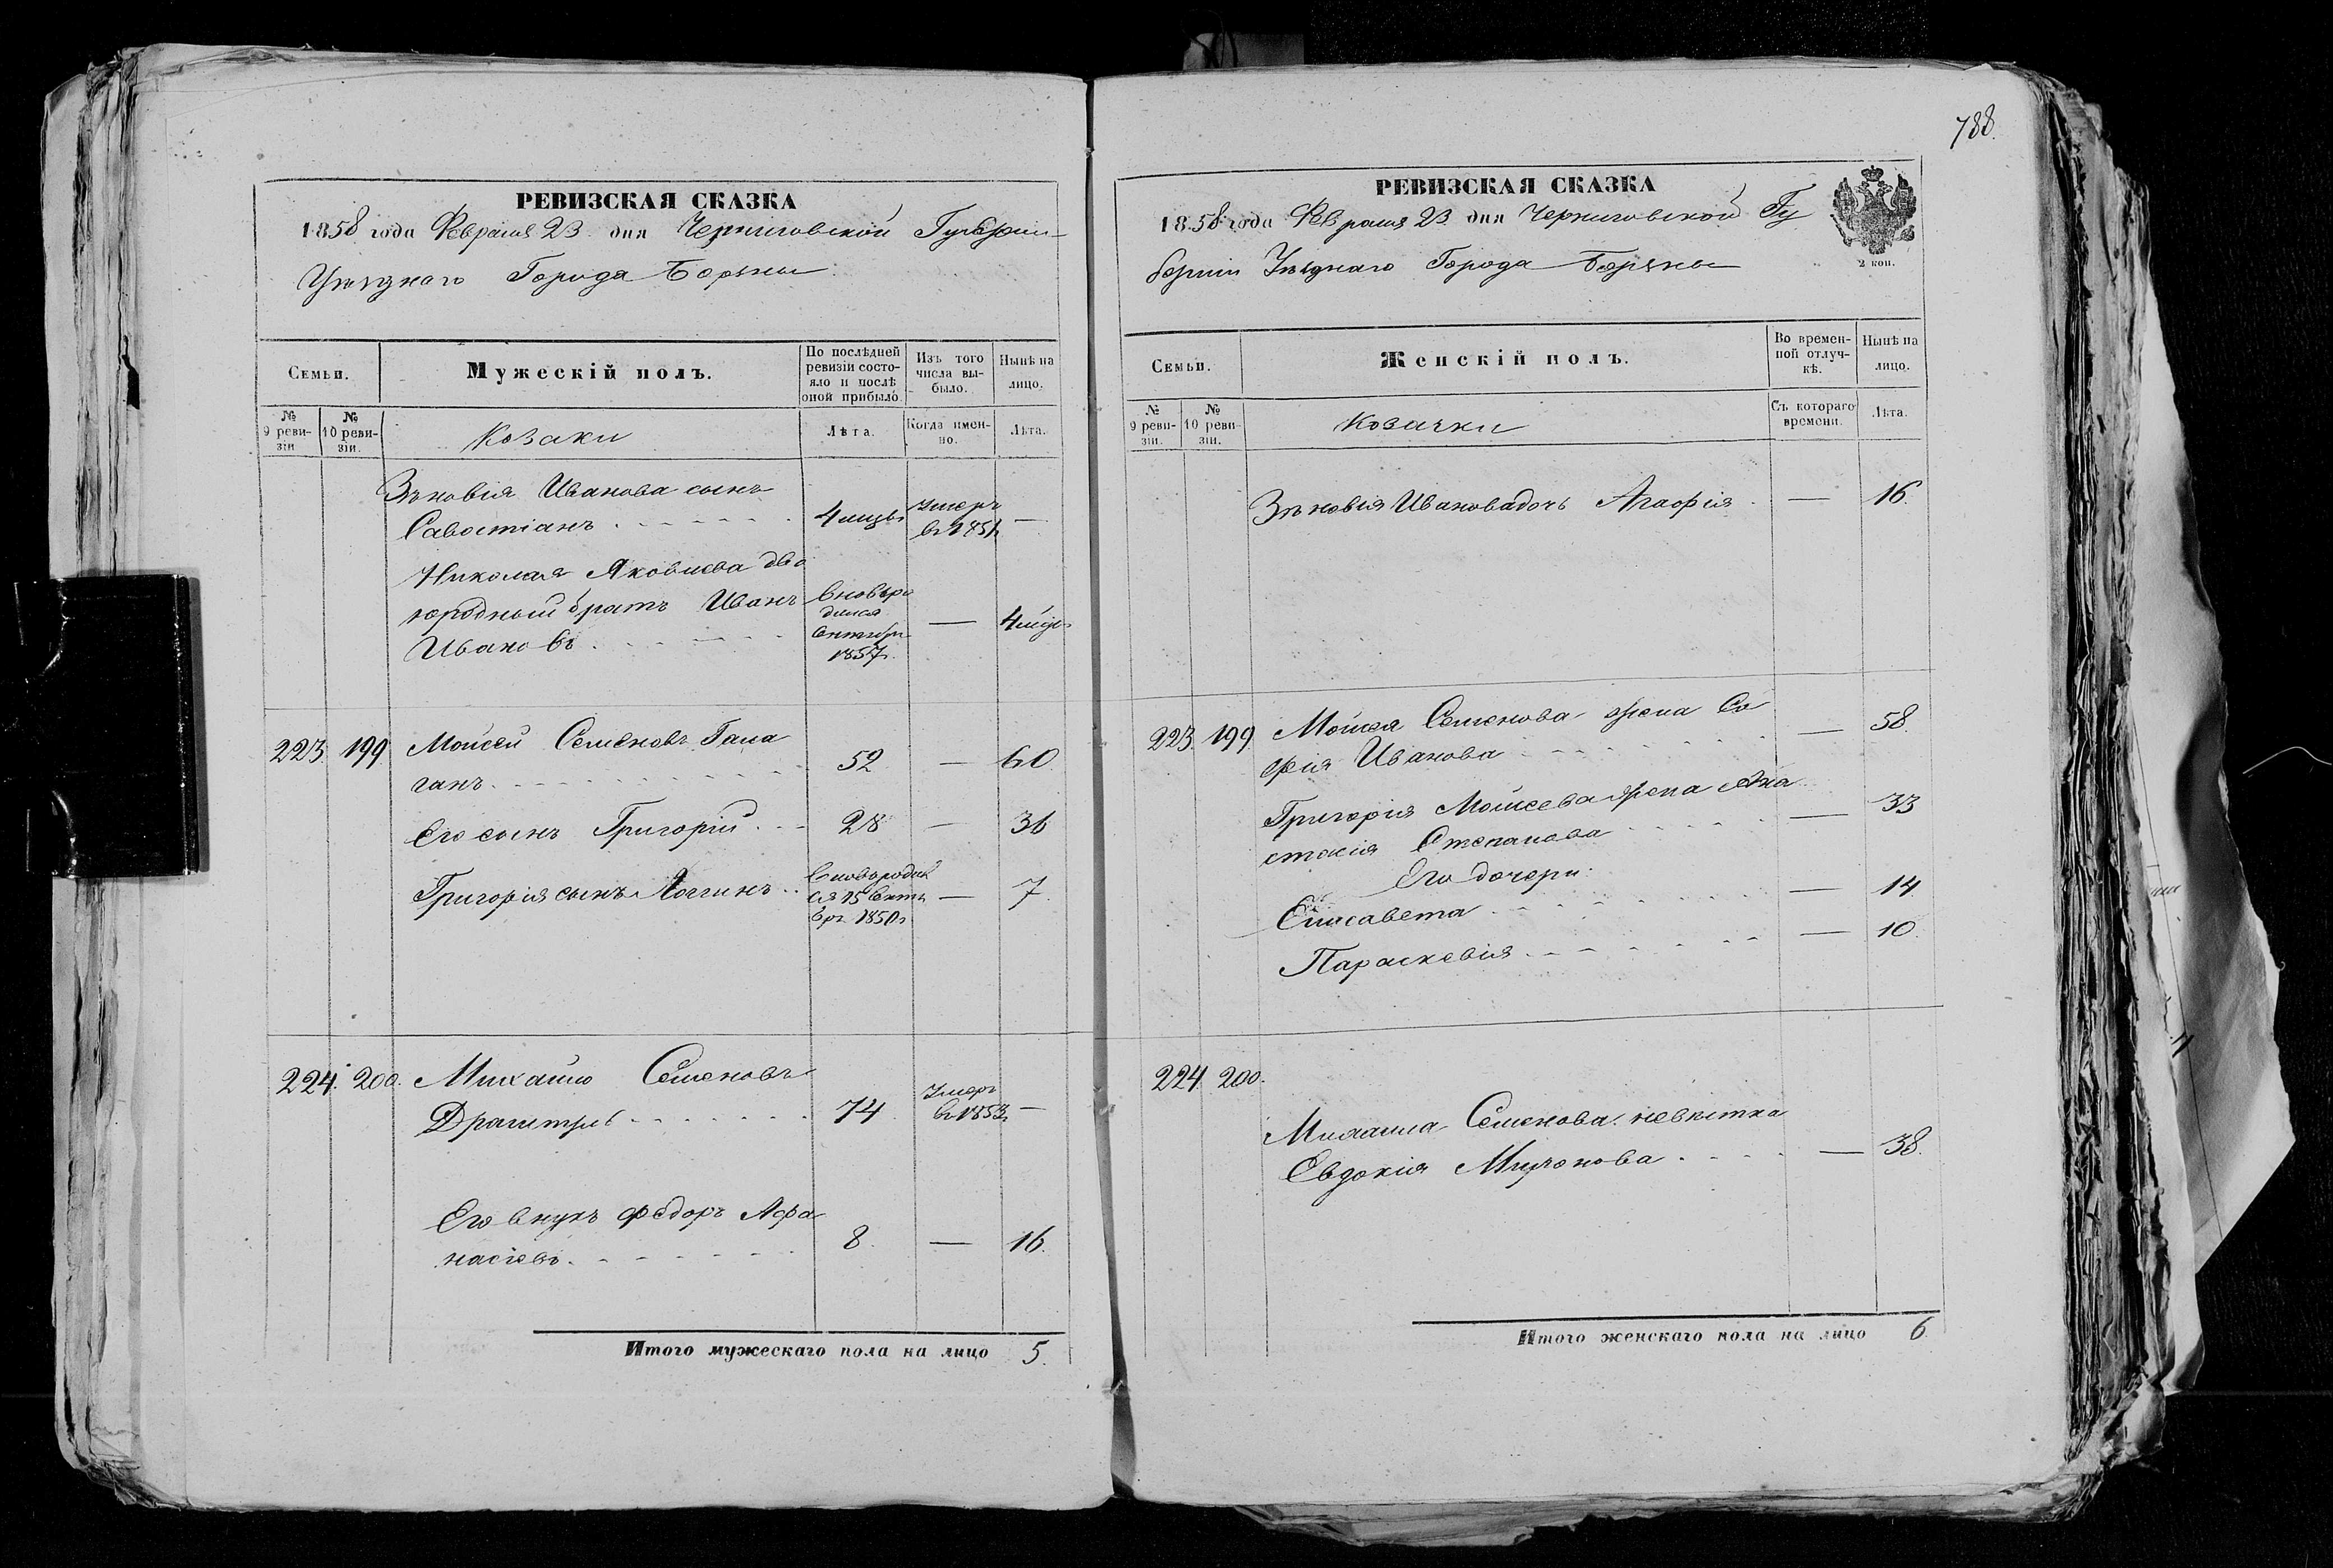 788.
РЕВИЗСКАЯ СКАЗКА
1858 года Февраля 23 дня Черниговской Губерніи
Уѣзднаго Города Борзны
Семьи.
Мужескій полъ.
По послѣдней ревизіи состояло и послѣ оной прибыло.
Изъ того числа выбыло.
Нынѣ на лицо.
№ 9 ревизіи
№ 10 ревизіи.
Козаки
Лѣта.
Когда именно.
Лѣта.
Зѣновія Иванова сынъ
Савостіанъ 4 мцъ Умеръ въ 1851 —
Николая Яковлева дво
юродный братъ Иванъ
Ивановъ вновь ро
дился
1857 — 4 мцъ
223. 199. Мойсей Семеновъ Гала
ганъ. 52 — 60
Его сынъ Григорій 28 — 36
Григорія сынъ Логгинъ вновь родил
ся 15 Октя
бря 1850 г — 7
224. 200. Михайло Семеновъ
74 Умеръ въ 1853 —
Его внукъ Федоръ Афа
насіевъ. 8. — 16.
Итого мужескаго пола на лицо 5.
РЕВИЗСКАЯ СКАЗКА
1858 года Февраля 23 дня Черниговской Гу
берніи Уѣзднаго Города Борзны
2 коп.
Семьи.
Женскій полъ.
Во временной отлучкѣ.
Нынѣ на лицо.
№ 9 ревизіи.
№ 10 ревизіи.
Козачки
Съ котораго времени.
Лѣта.
Зѣновія Иванова дочь Агафія — 16.
223. 199. Мойсея Семенова жена Со
фія Иванова — 58.
Григорія Мойсеева жена Ана
стасія Степанова — 33
Его дочери:
Елисавета — 14.
Параскевія — 10.
224. 200.
Михаила Семенова невѣстка
Евдокія Миронова — 38.
Итого женскаго пола на лицо 6.